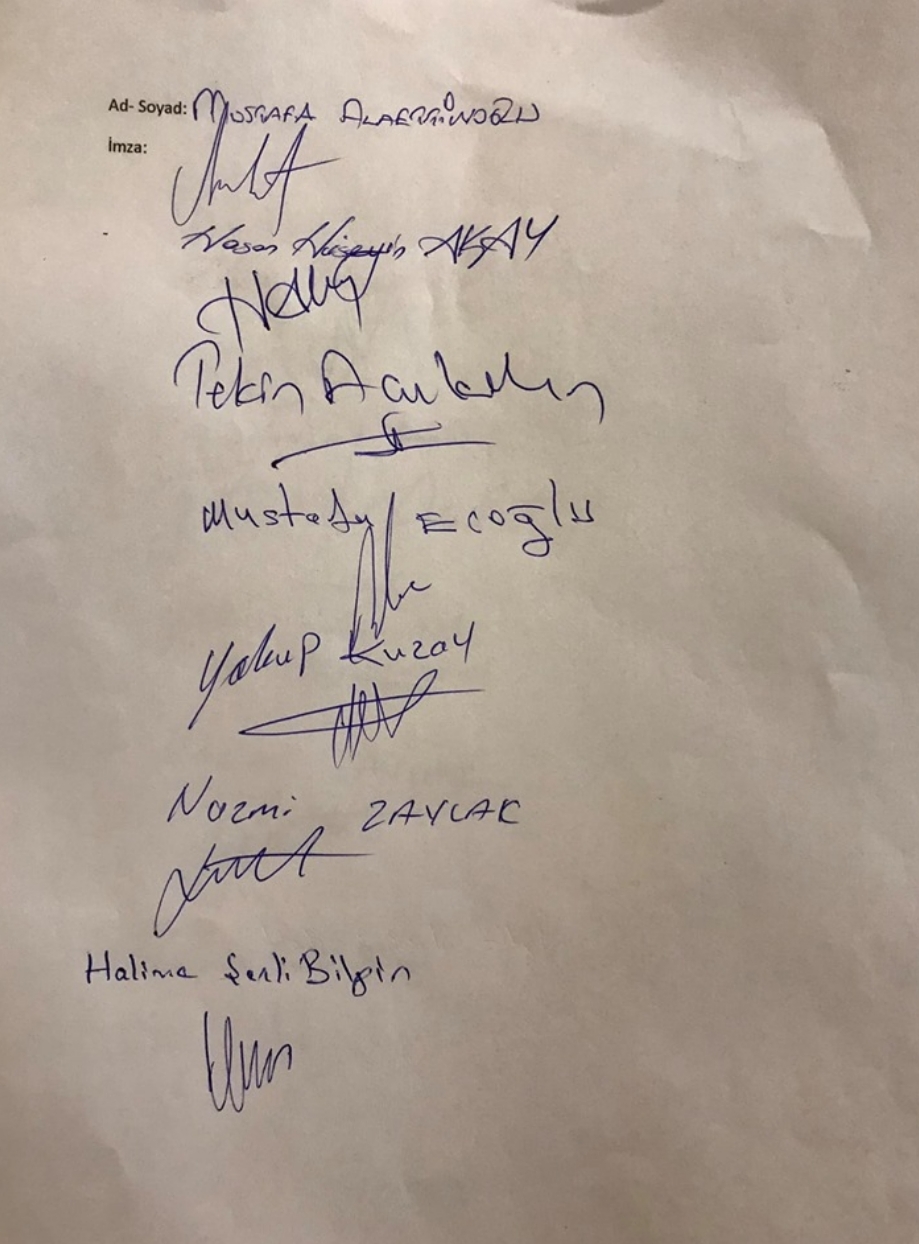 Ad- Soyad: MUSTAFA
İmza:
Hasan Hüseyin AKŞAY
Tekin
Mustafa Ecoğlu
Yakup Kuzay
Nazmi ZAYLAK
Halime Şenli Bilgin